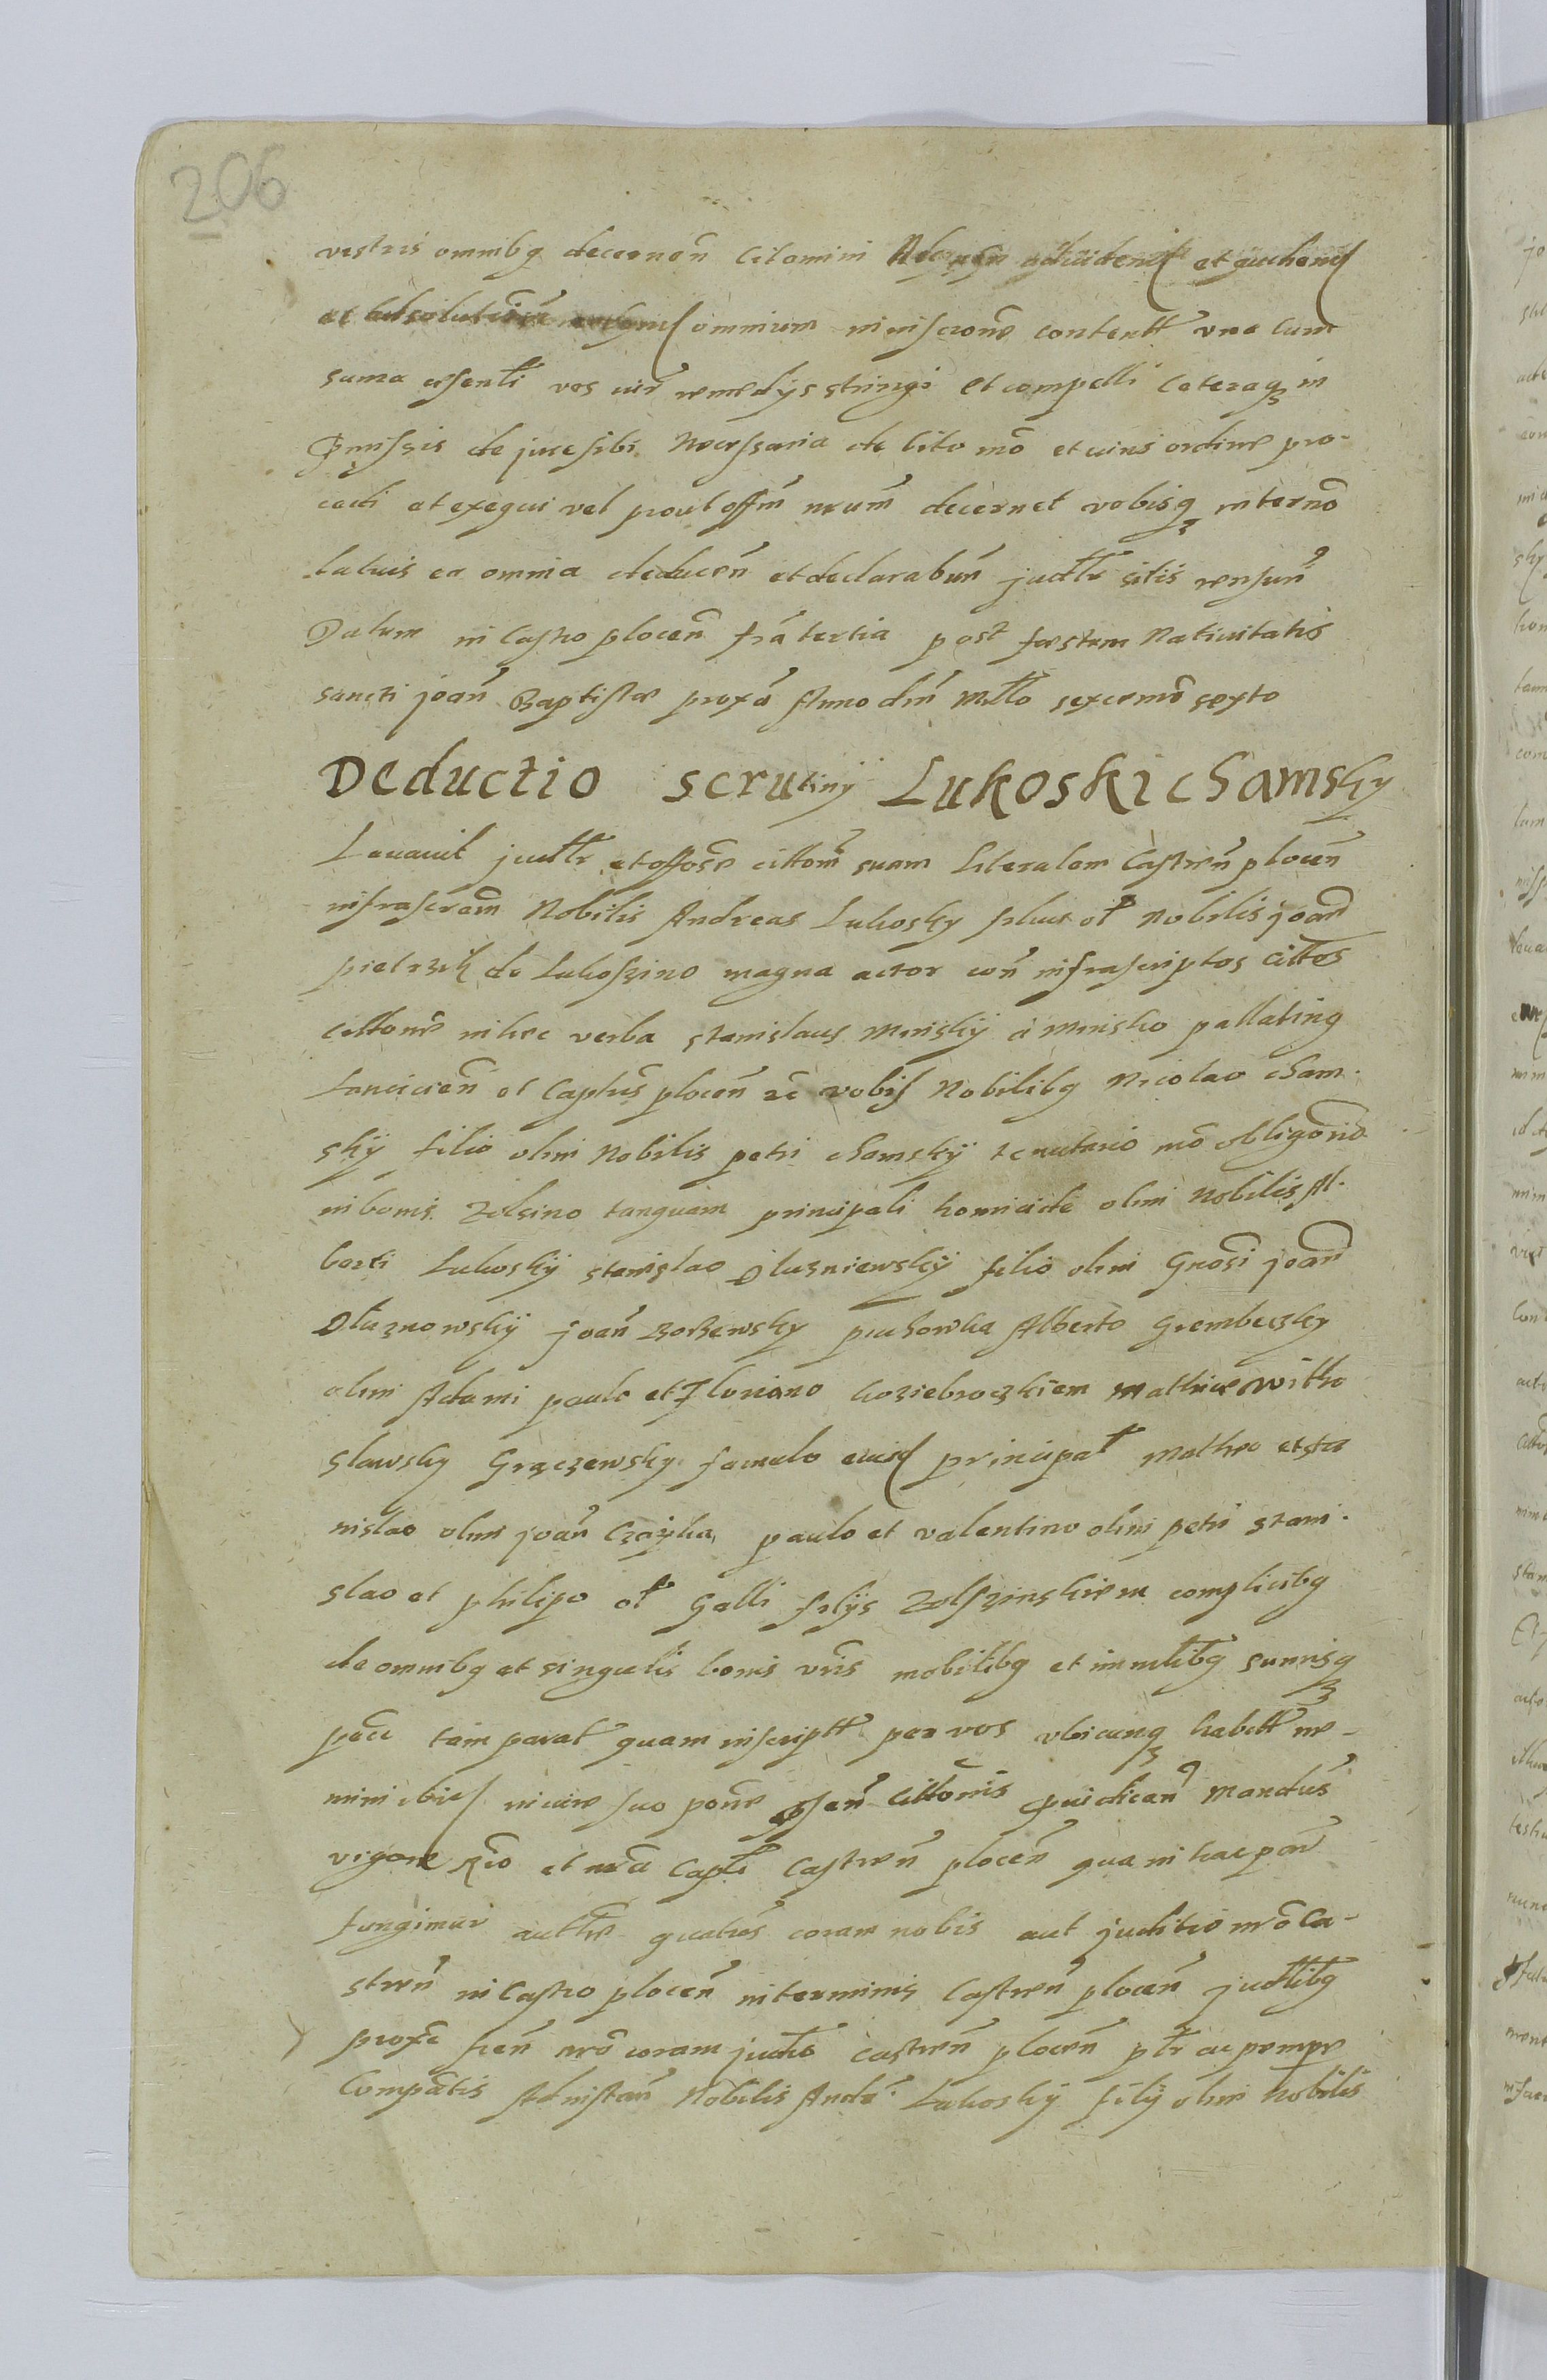 206
vestris omnibq decernen̄ Citamini et
et omnium in inscrone contentt vna cum
suma vos remedys stringi et compelli Ceteraq in
p̄missis de jure sibi Necessaria de bito mō et ordine pro-
cedi et exequi vel prout offm̄ nrum̄ decernet vobisq in termō
ea omnia deducen̄ et declarabun̄ judtr sitis
Datum in Castro plocen̄ fr̄a tertia post festum Natiuitatis
sancti joan̄ Baptistæ proxa Anno dm̄ Mtto sexcemō sexto
Deductio scrutiny Lukoski chamsky
Leuauit judtr et offose cittom̄ suam literalem Castren̄ plocen̄
infrascram̄ Nobilis Andreas Lukosky filius ol Nobilis joan̄
pietrzik de Lukoszino magna actor con̄ infrascriptos cittos
cittone in hæc verba stanislaus Minsky à Minsko pallatinq
Lancicien̄ et Captus̄ plocen̄ zc̄ vobis Nobilibq Nicolao cham-
sky filio olim Nobilis petri chamsky tenutario mō obligorio
in bonis Zelsino tanquam principali homicide olim Nobilis Al-
berti Lukosky stanislao Dluzniewsky filio olim Gnosi joan̄
Dluznowsky joan̄ pruchowka Alberto Grembeczky
olim Adami paulo et Floriano koziebroczkiem Mathiæ witko
slawsky Grączewsky famulo eiusd principal Matheo et sta
nislao olim joan̄ Czayka paulo et valentino olim petri stani-
slao et philipo ol Galli filys Zelszinskiem complicibq
de omnibq et singulis bonis vr̄is mobilibq et immlibq sumisq
pecu tam parat quam inscriptt per vos vbicunq habitt ne-
mini in iure suo pone p̄sen̄ Cittonis p̄iudican̄ Mandus̄
vigore Rīo et nr̄a Captli Castren̄ plocen̄ qua in hac par̄
fungimur auttre quatus̄ coram nobis aut juditio nr̄o Ca-
stren̄ in Castro plocen̄ in terminis Castren̄ plocen̄ judtlibq
proxe coram judtio castren̄ plocen̄ ptr ac pempe
Compatis Ad instan̄ Nobilis Andr̄ Lukosky fily olim Nobilis